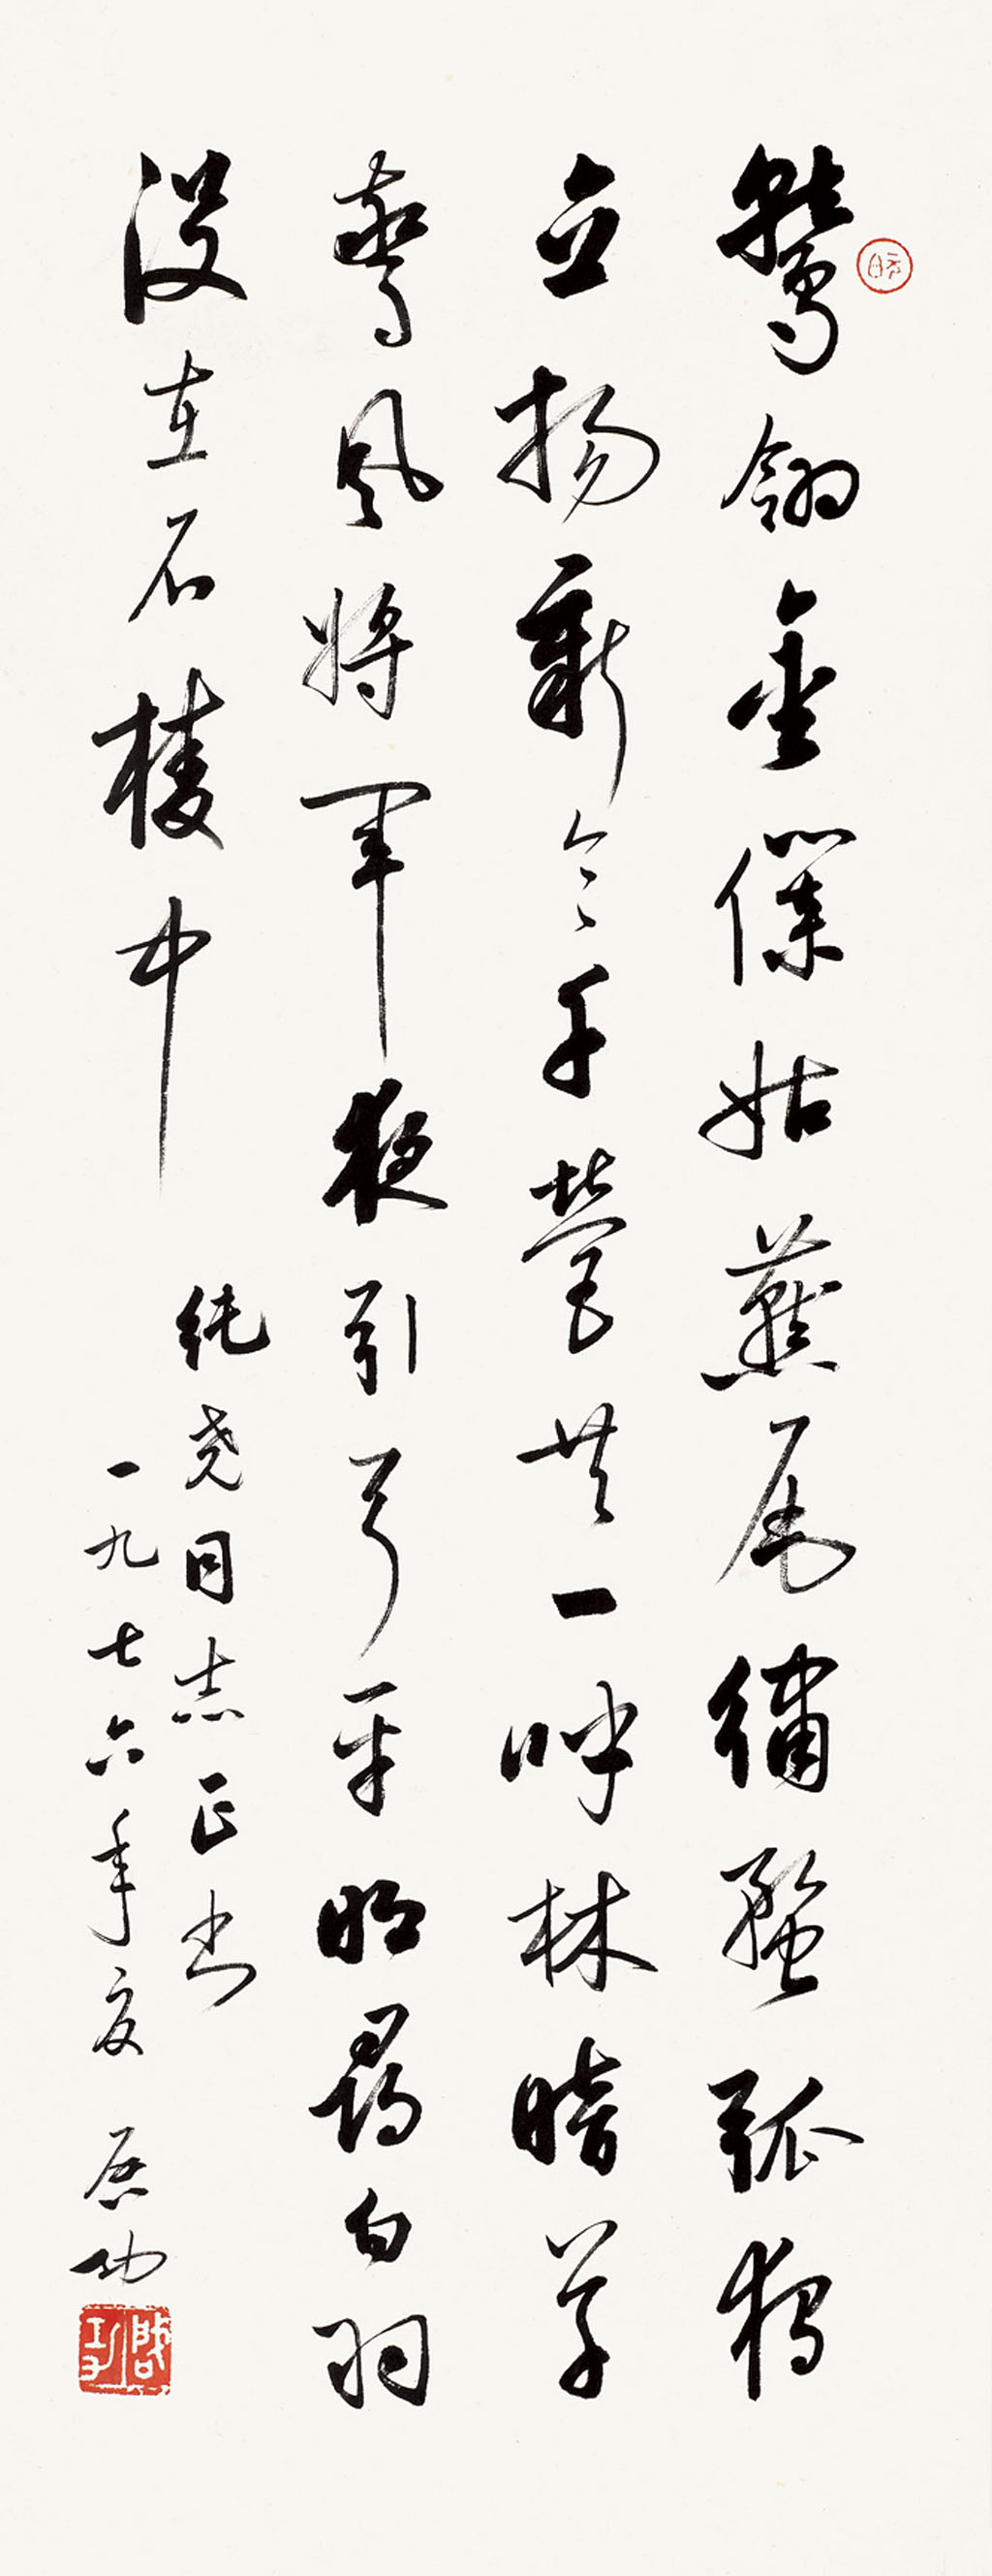 鷲翎金僕姑燕尾繡蝥弧獨
立揚新令千營共一呼林暗草
驚風將軍夜引弓平明尋白羽
沒在石棱中
純堯同志正書
一九七六年夏 啟功
啟功